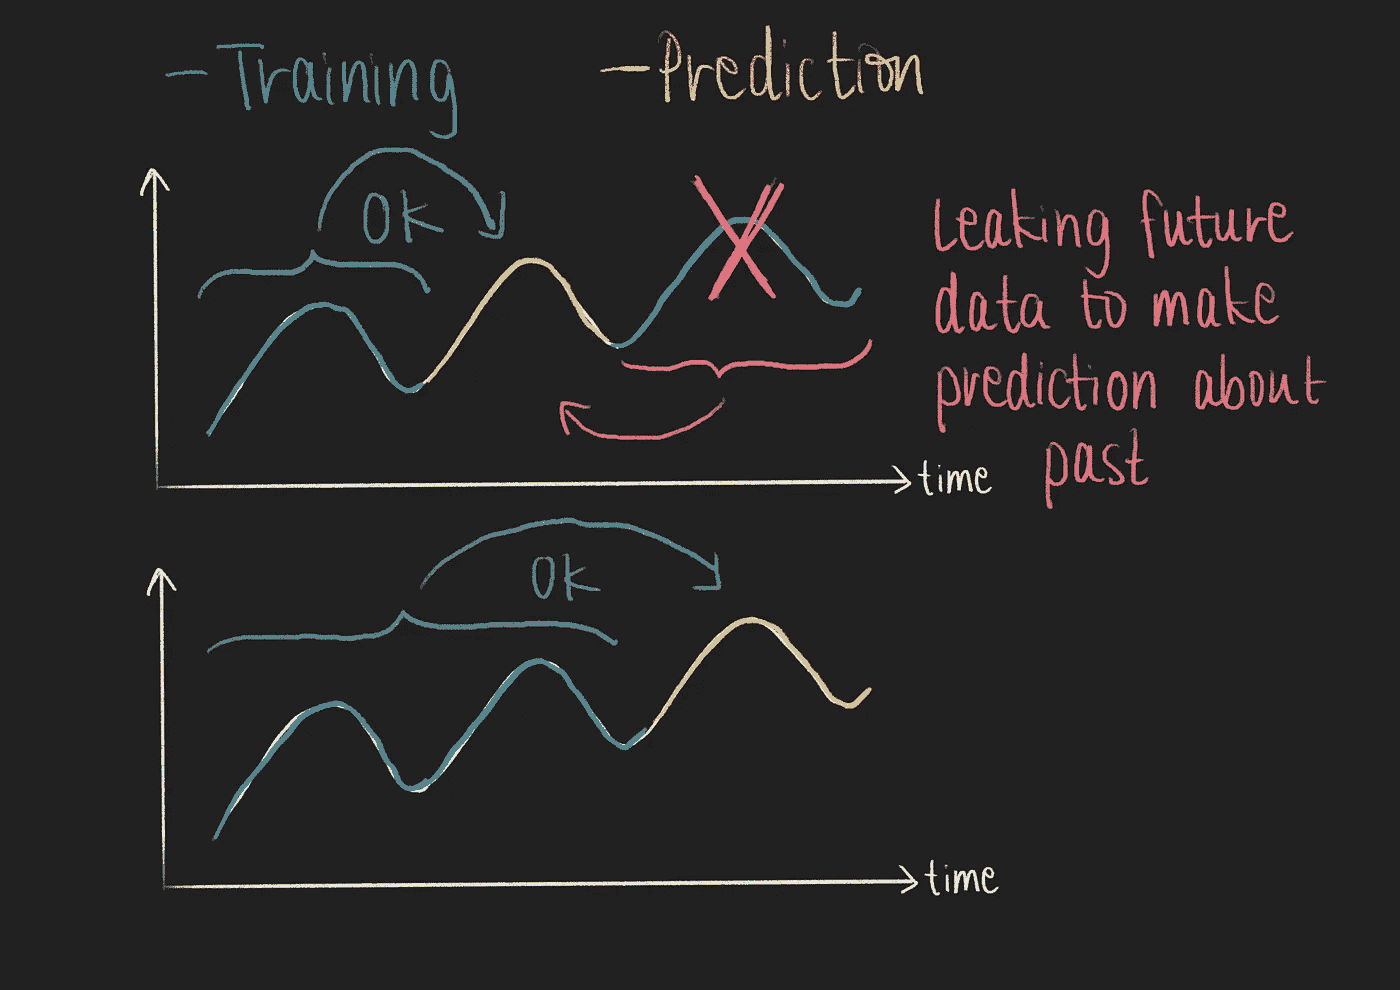 - Training
- Prediction
OK
Leaking future
data to make
prediction about
past
time
OK
time